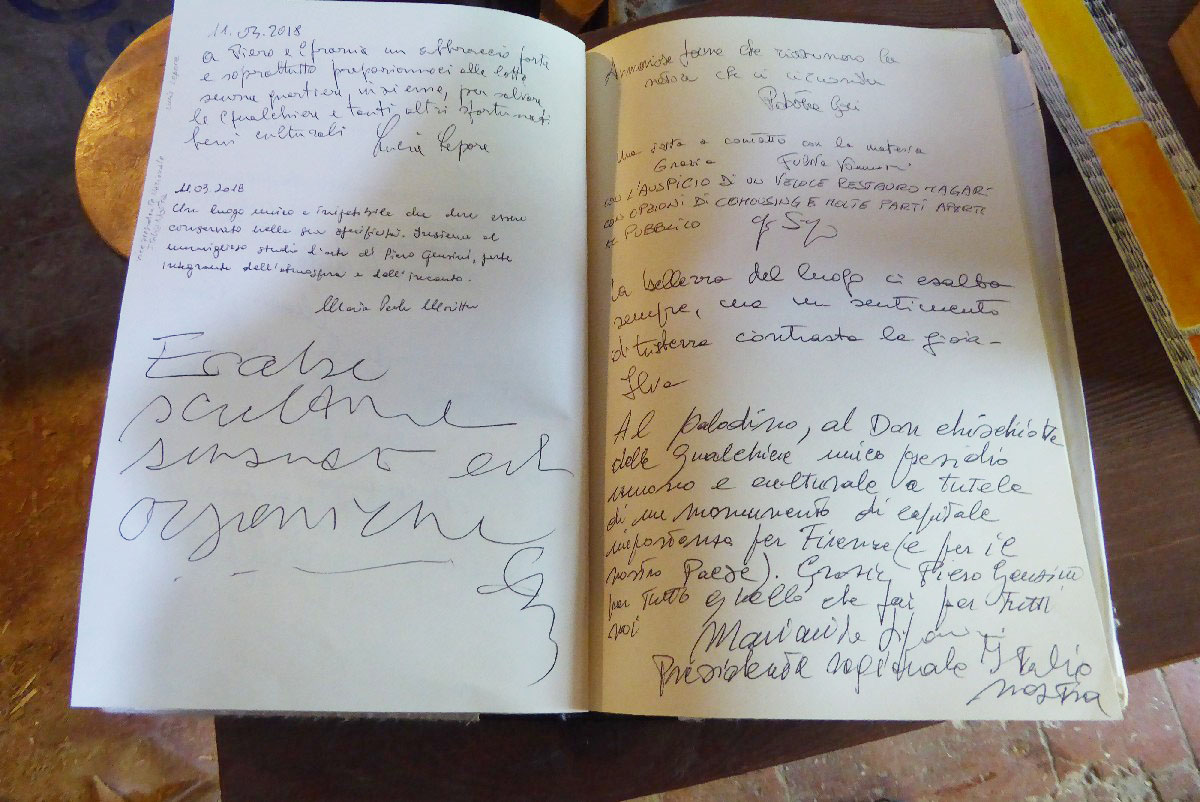 11.03.2018
a Piero e Efrania un abbraccio forte
e soprattutto prepariamoci alle lotte
senza quartiere insieme, per salvare
le Gualchiere e tanti altri sfortunati
beni culturali Lucia Lepore
11.03.2018
Che luogo unico e irripetibile che deve essere
conservato nella sua specificità. Insieme al
meraviglioso studio d'arte di Piero Gensini, parte
integrante dell'atmosfera e dell'incanto.
Maria Paola
sculture
sensuali ed
organiche
Armoniose forme che
natura che ci circonda
Una festa a contatto con la materia
Grazia Fulvia
CON L'AUSPICIO DI UN VELOCE RESTAURO MAGARI
CON OPZIONI DI COHOUSING E MOLTE PARTI APERTE
AL PUBBLICO
La bellezza del luogo ci esalta
sempre, ma un sentimento
di tristezza contrasta la gioia -
Ilva
Al paladino, al Don chischiotte
delle Gualchiere unico presidio
umano e culturale a tutela
di un monumento di capitale
importanza per Firenze (e per il
nostro Paese). Grazie, Piero Gensini
per tutto quello che fai per tutti
noi
Mariarita
Presidente regionale Italia
nostra